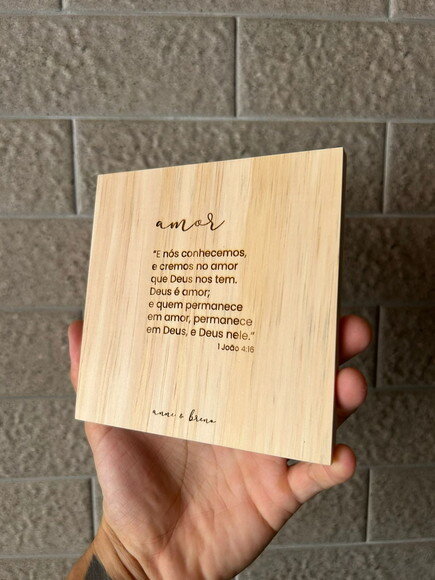 amor
"E nós conhecemos,
e cremos no amor
que Deus nos tem.
Deus é amor;
e quem permanece
em amor, permanece
em Deus, e Deus nele."
1 João 4:16
anne & breno